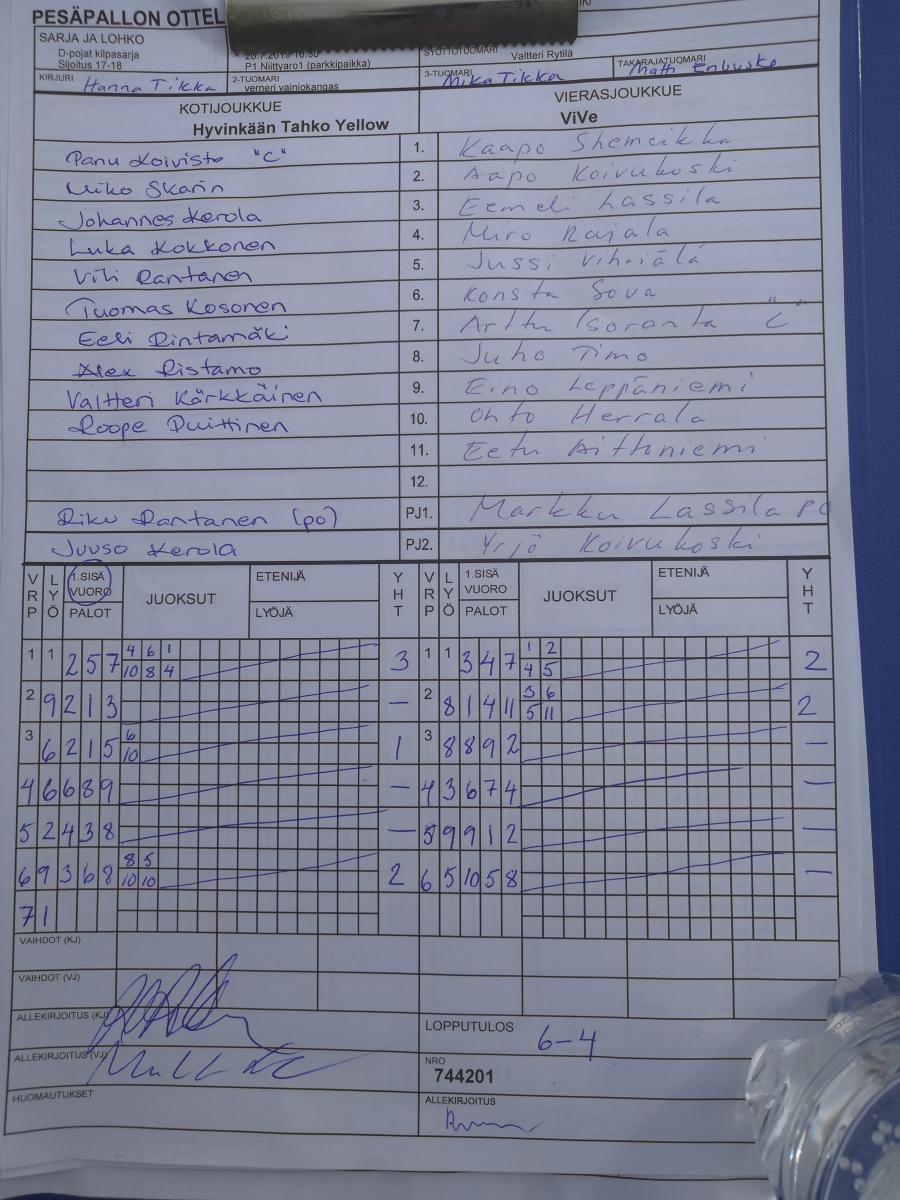 PESÄPALLON OTTEL
SARJA JA LOHKO
D-pojat kilpasarja
Sijoitus 17-18
20.7.2019 16:30
P1 Niittyaro1 (parkkipaikka)
SYÖTTÖTUOMARI
Valtteri Rytilä
KIRJURI Hanna Tikka
2-TUOMARI
verneri vainiokangas
3-TUOMARI Mika Tikka
TAKARAJATUOMARI
Matti Enbuske
KOTIJOUKKUE
Hyvinkään Tahko Yellow
VIERASJOUKKUE
ViVe
Panu Koivisto "C" 1. Kaapo Shemeikka
Miko Skarin 2. Aapo Koivukoski
Johannes Kerola 3. Eemeli Lassila
Luka Kokkonen 4. Miro Rajala
Vili Rantanen 5. Jussi Vihriälä
Tuomas Kosonen 6. Konsta Sova
Eeli Rintamäki 7. Arttu Isoranta "C"
Alex Ristamo 8. Juho Timo
Valtteri Kärkkäinen 9. Eino Leppäniemi
Roope Puittinen 10. Ohto Herrala
11. Eetu Aittoniemi
12.
Riku Rantanen (po) PJ1. Markku Lassila po
Juuso Kerola PJ2. Yrjö Koivukoski
VRP LYÖ 1.SISÄ VUORO PALOT JUOKSUT ETENIJÄ LYÖJÄ YHT VRP LYÖ 1.SISÄ VUORO PALOT JUOKSUT ETENIJÄ LYÖJÄ YHT
1 1 2 5 7 4 6 1 3 1 1 3 4 7 1 2 2
10 8 4 4 5
2 9 2 1 3 – 2 8 1 4 11 3 6 2
5 11
3 6 2 1 5 6 1 3 8 8 9 2 –
10
4 6 6 8 9 – 4 3 6 7 4 –
5 2 4 3 8 – 5 9 9 1 2 –
6 9 3 6 8 8 5 2 6 5 10 5 8 –
10 10
7 1
VAIHDOT (KJ)
VAIHDOT (VJ)
ALLEKIRJOITUS (KJ)
LOPPUTULOS 6-4
ALLEKIRJOITUS (VJ)
NRO
744201
HUOMAUTUKSET
ALLEKIRJOITUS